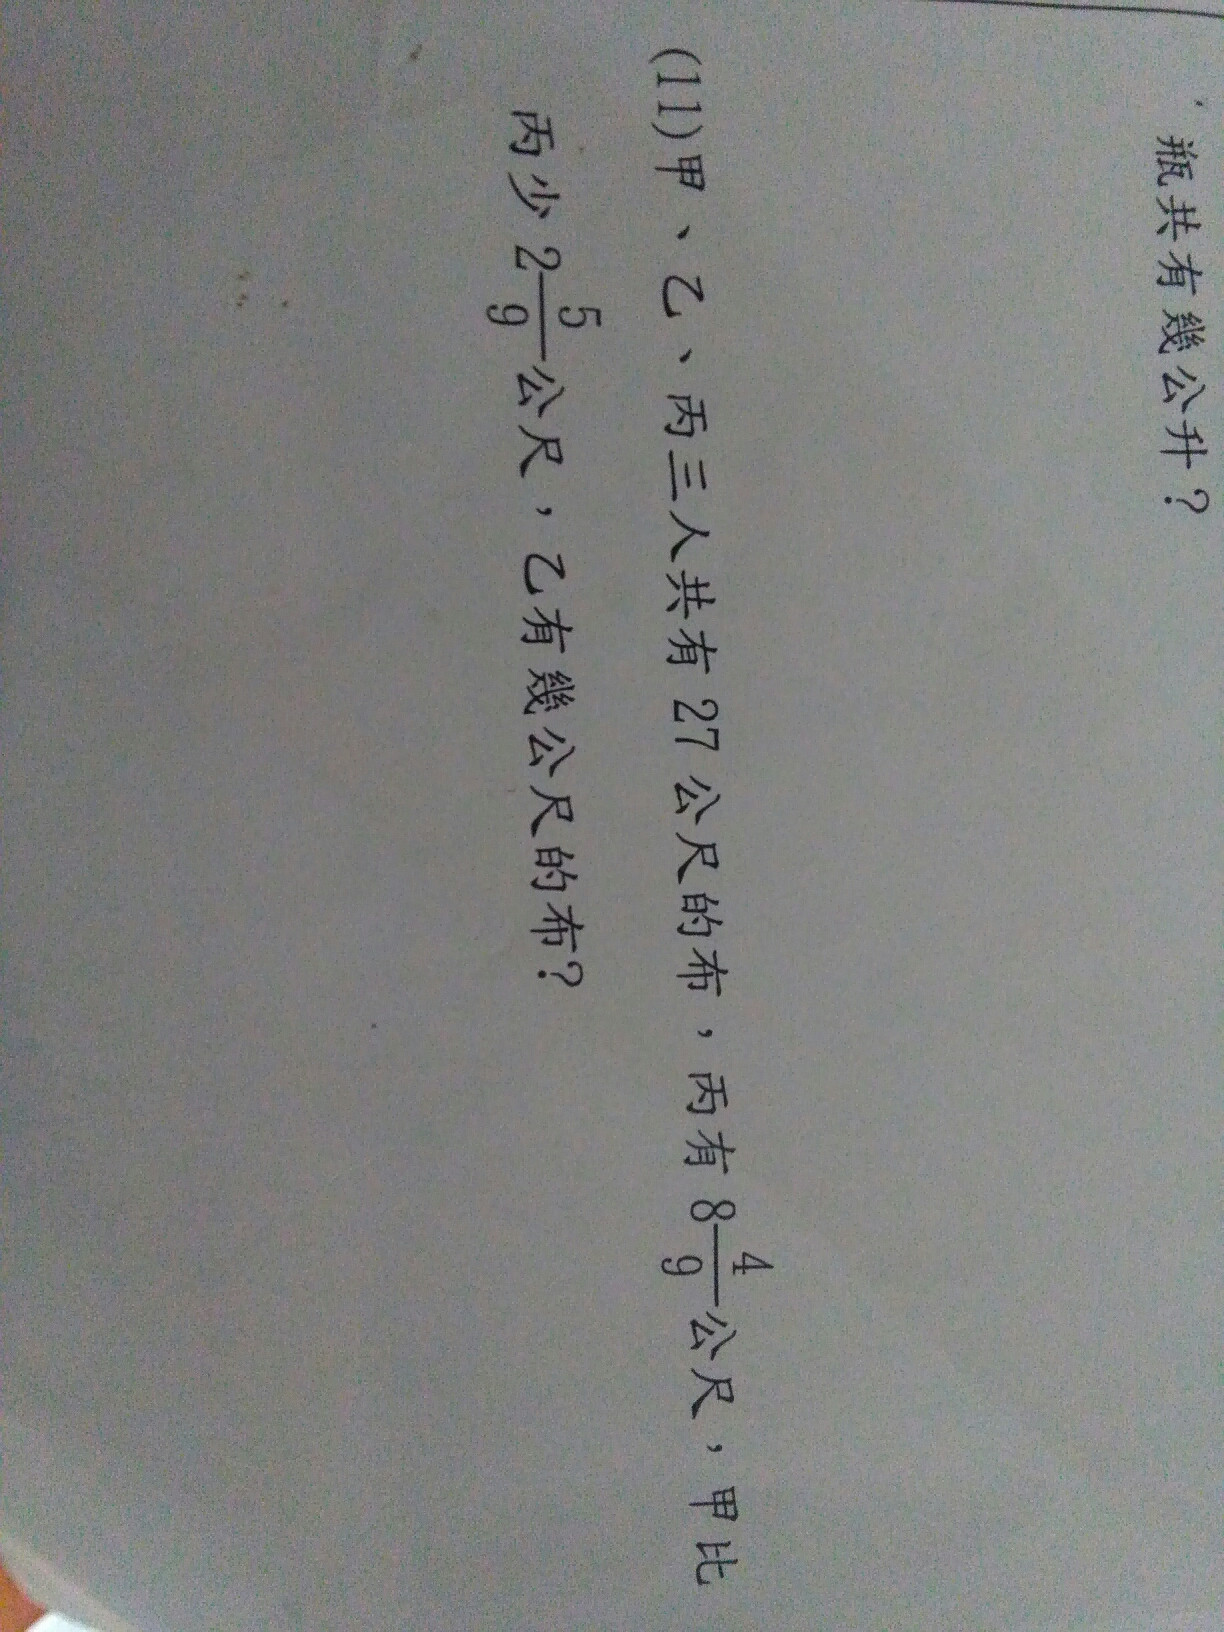 瓶共有幾公升？
(11)甲、乙、丙三人共有 27 公尺的布，丙有 8 4/9 公尺，甲比
丙少 2 5/9 公尺，乙有幾公尺的布？